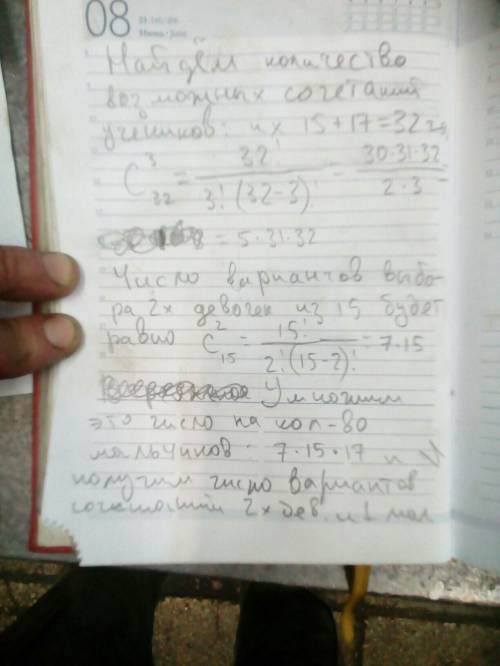 08
Найдём количество
возможных сочетаний
учеников: их 15+17=32
C³₃₂ = 32! / 3!(32-3)! = 30·31·32 / 2·3 =
= 5·31·32
Число вариантов выбо-
ра 2х девочек из 15 будет
равно C²₁₅ = 15! / 2!(15-2)! = 7·15
Умножим
это число на кол-во
мальчиков: 7·15·17 и
получим число вариантов
2х дев. и 1 мал